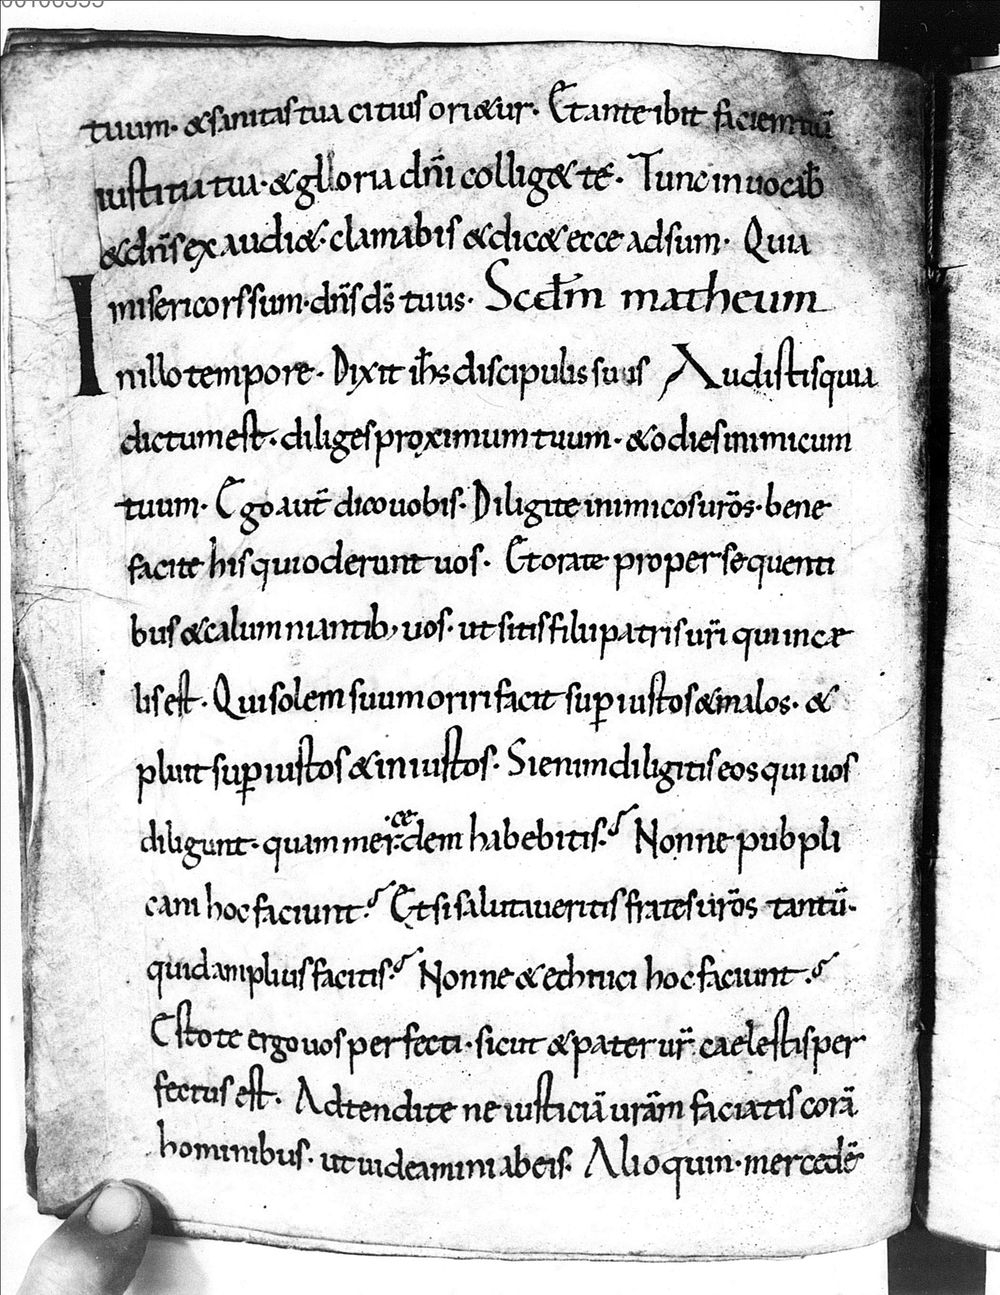 tuum· & sanitas tua citius ori&ur· Et ante ibit faciem tuā
iustitia tua· & glloria dñi collig& te· Tunc inuocab
& dñs exaudi&· clamabis & dic& ecce adsum· Quia
misericors sum· dñs ds̄ tuus· Scdm̄ matheum
Inillo tempore· Dixit ih̄s discipulis suis Audistis quia
dictum est· diliges proximum tuum· & odies inimicum
tuum· Ego aut̄ dico uobis· Diligite inimicos urōs· bene
facite his qui oderunt uos· Et orate pro persequenti
bus & calumniantib; uos· ut sitis filii patris uri̅ qui in cæ
lis est· Qui solem suum oriri facit sup̱ iustos & malos· &
pluit sup̱ iustos & iniustos· Si enim diligitis eos qui uos
diligunt· quam mer·ce·dem habebitis? Nonne pubpli
cani hoc faciunt? Et si salutaueritis frates urōs tantū·
quid amplius facitis? Nonne & ethnici hoc faciunt?
Estote ergo uos perfecti· sicut & pater ur̄ caelestis per
fectus est· Adtendite ne iusticiā urām faciatis corā
hominibus· ut uideamini ab eis· Alioquin· mercedē